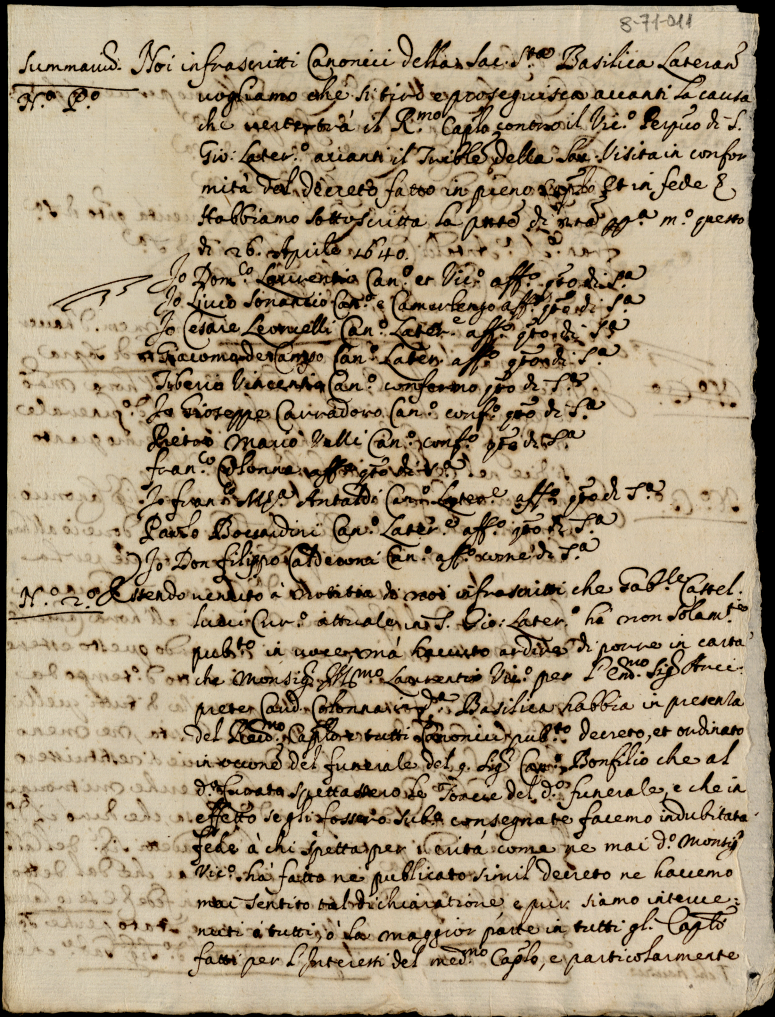 8-71-011
Summariũ. Noi infrascritti Canonici della Sac. S.ta Basilica Lateran.
N.o P.o vogliamo che si tiri e proseguisca avanti la causa
che verte trà il R.mo Caplo contro il Vic.o Perpuo di S.
Gio: Later.o avanti il Trible della Sac. Visita in confor
mità del decreto fatto in pieno Caplo Et in fede
Habbiamo sottoscritta la pnte di nra ppa m.o questo
di 26. Aprile 1640.
Io Dom.co Laurentio Can.o et Vic.o aff.o qto di S.a
Io Livio Can.o e Camerlengo aff.o qto di S.a
Io Cesare Leoncelli Can.o Later.e aff.o qto di S.a
Giacomo de Campo Can.o Later. aff.o qto di S.a
Tiberio Vincentio Can.o confermo qto di S.a
Io Gioseppe Carradoro Can.o conf.o qto di S.a
Pietro Mario Can.o conf.o qto di S.a
Fran.co Colonna aff.o qto di S.a
Io Fran.co M.a Antaldi Can.o Later.e aff.o qto di S.a
Paolo Can.o Later.e aff.o qto di S.a
Io Don Filippo Calderoni Can.o aff.o come di S.a
N.o 2.o Essendo venuto à notitia di noi infrascritti che Gab.le Castel-
lani Cur.o attuale in S. Gio: Later.o hà non solam.te
pub.to in voce mà havuto ardire di porre in carta
che Monsig. Ill.mo Laurentio Vic.o per l'Em.mo Sig. Arci-
prete Card. Colonna in d.a Basilica habbia in presenza
del Rev.mo Caplo e tutti Canonici pub.to decreto, et ordinato
in occone del funerale del q. Sig. Can. Bonfilio che al
d.o Curato spettassero le Torcie del d.o funerale, e che in
effetto se gli fossero sub.o consegnate facemo indubitata
fede à chi spetta per verità come ne mai d.o Monsig.
Vic.o hà fatto ne publicato simil decreto ne havemo
mai sentito tal dichiaratione e pur siamo interve-
nuti à tutti, ò la maggior parte in tutti gl. Caplo
fatti per l'Interessi del med.mo Caplo, e particolarmente